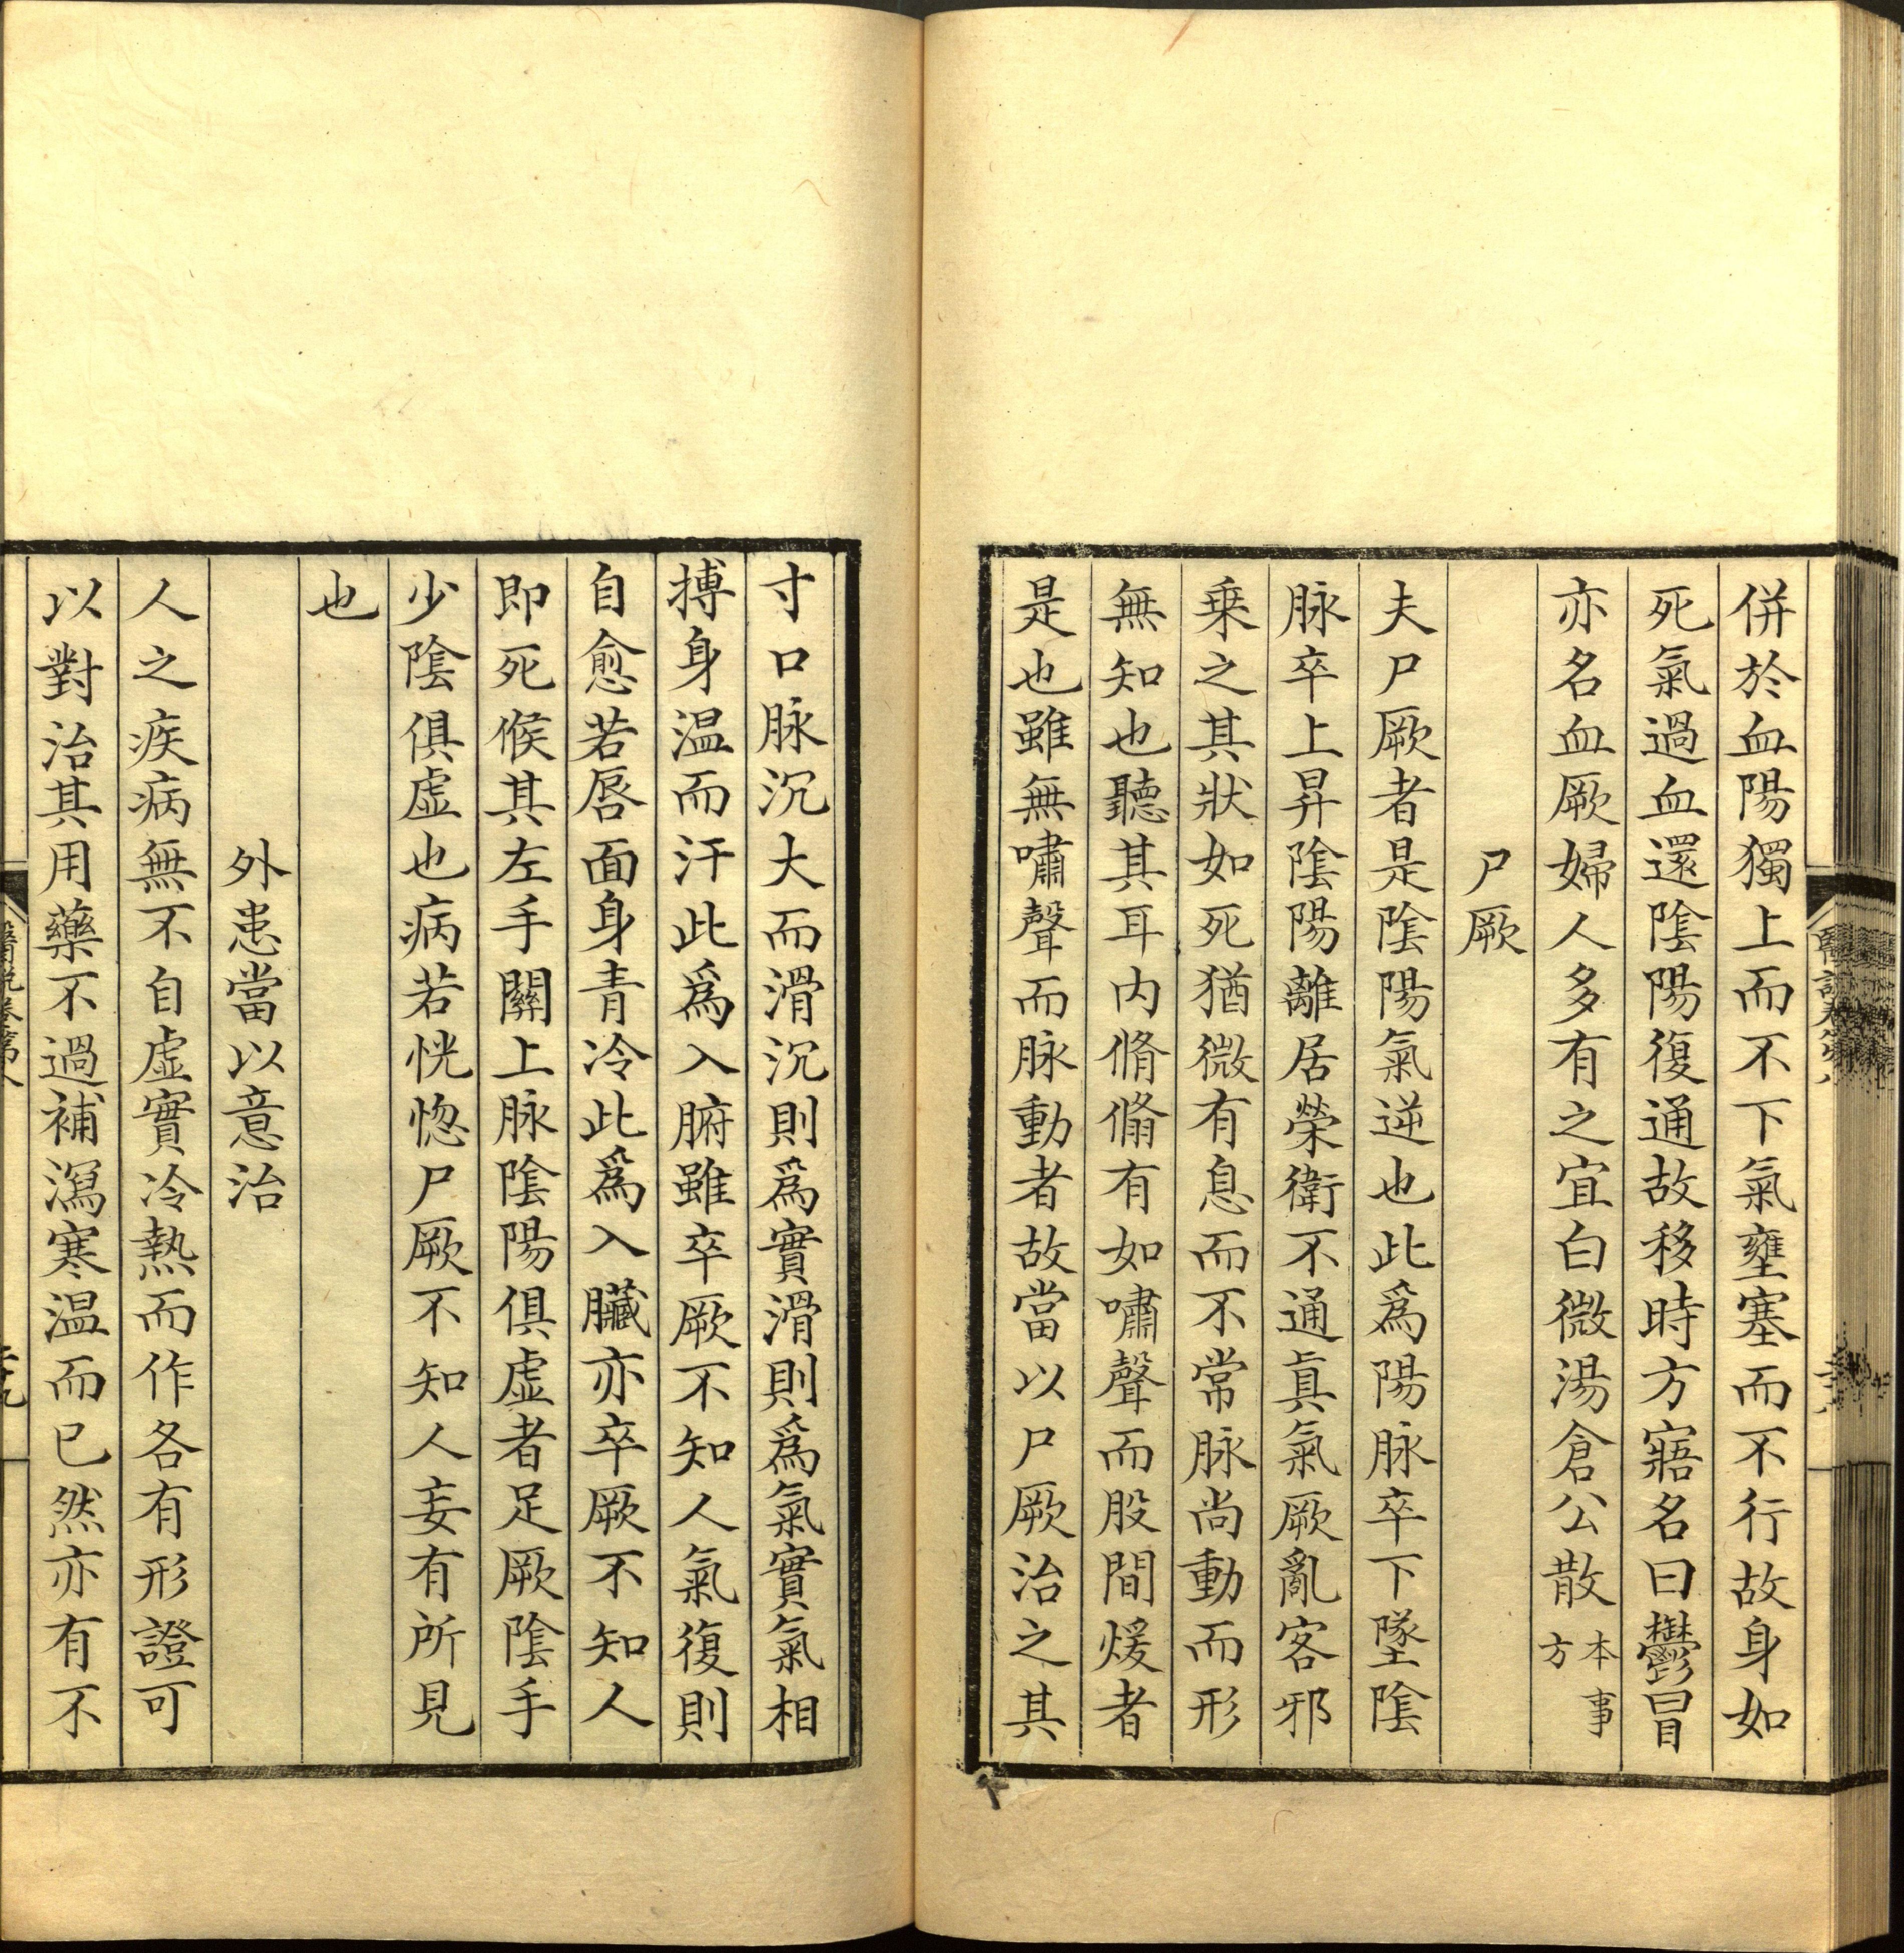 併於血陽獨上而不下氣壅塞而不行故身如
死氣過血還陰陽復通故移時方寤名曰鬱冒
亦名血厥婦人多有之宜白微湯倉公散本事方
尸厥
夫尸厥者是陰陽氣逆也此爲陽脉卒下墜陰
脉卒上昇陰陽離居榮衛不通真氣厥亂客邪
乗之其狀如死猶微有息而不常脉尚動而形
無知也聽其耳内脩脩有如嘯聲而股間煖者
是也雖無嘯聲而脉動者故當以尸厥治之其
寸口脉沉大而滑沉則爲實滑則爲氣實氣相
搏身温而汗此爲入腑雖卒厥不知人氣復則
自愈若唇面身青冷此爲入臟亦卒厥不知人
即死候其左手關上脉陰陽俱虚者足厥陰手
少陰俱虚也病若恍惚尸厥不知人妄有所見
也
外患當以意治
人之疾病無不自虚實冷熱而作各有形證可
以對治其用藥不過補瀉寒温而已然亦有不
醫說卷第八